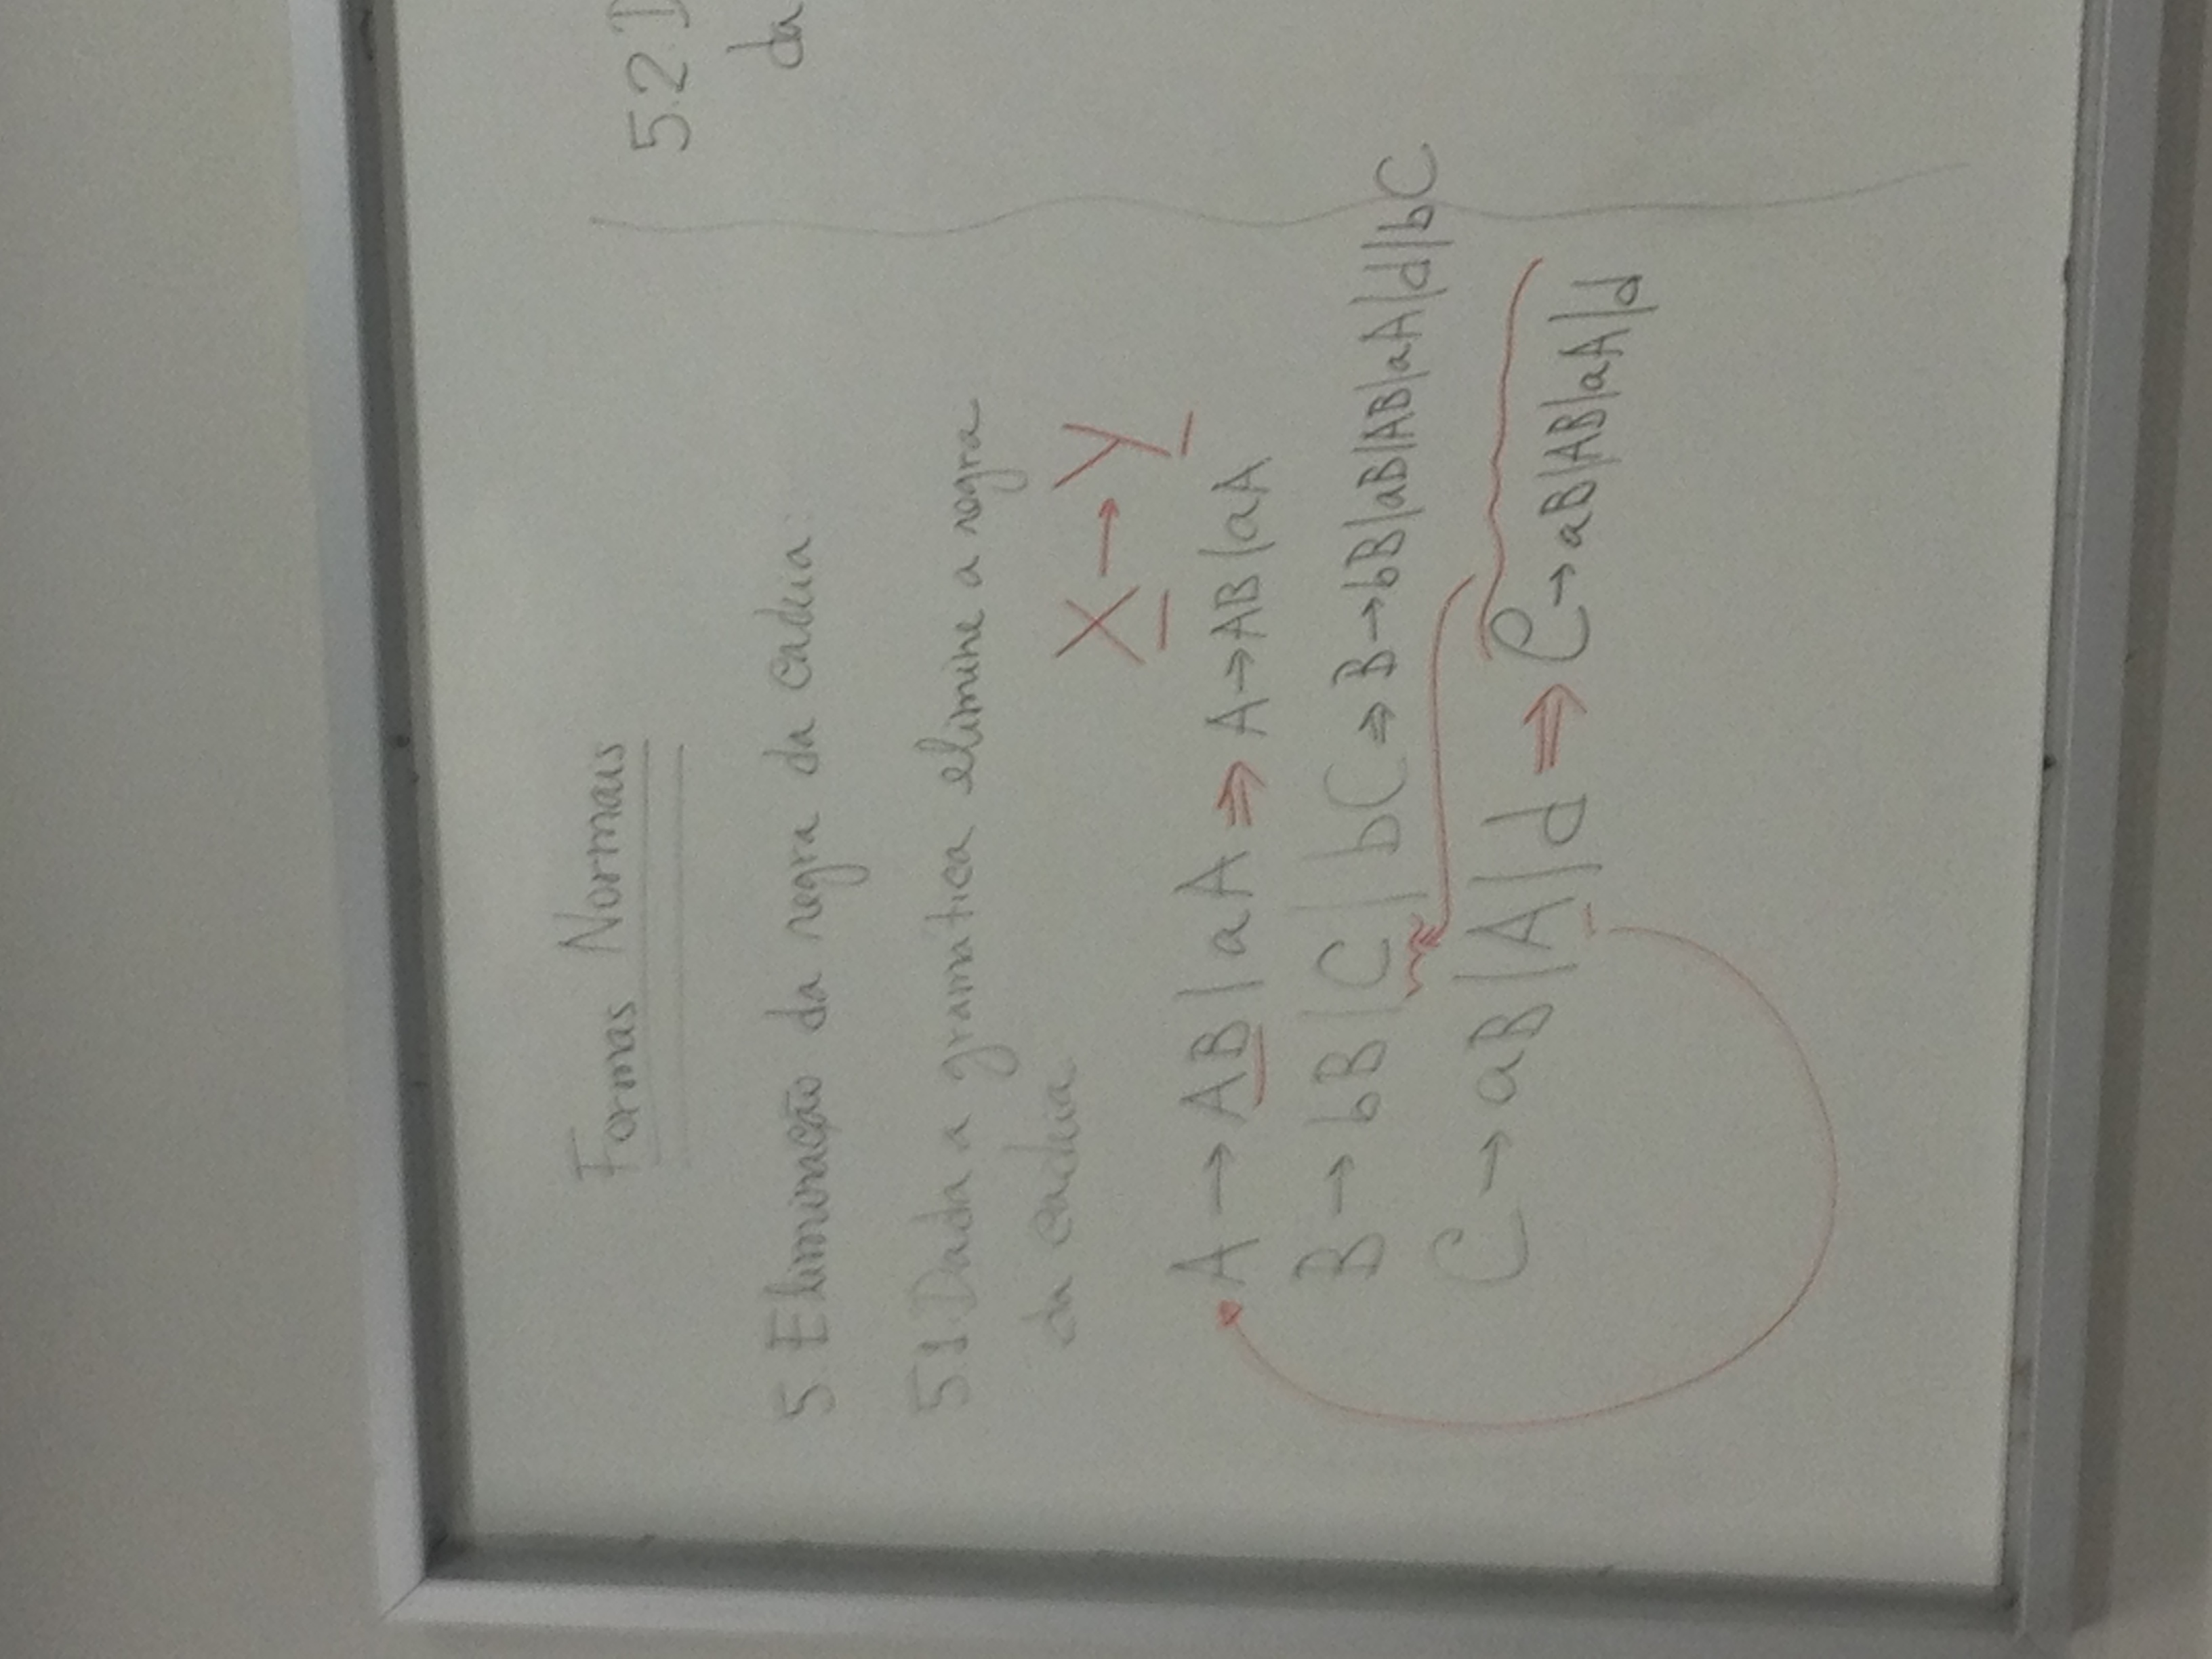 Formas Normais
5. Eliminação da regra da cadeia:
5.1. Dada a gramatica elimine a regra
da cadeia
X → Y
A → AB | aA ⇒ A → AB | aA
B → bB | C | bC ⇒ B → bB | aB | AB | aA | d | bC
C → aB | A | d ⇒ C → aB | AB | aA | d
5.2. D
da